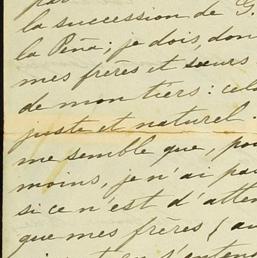 par
la succession de G.
la Peña; je dois, don
mes frères et sœurs
de mon tiers: cela
juste et naturel.
me semble que, pou
moins, je n'ai pas
si ce n'est d'atten
que mes frères (au
s'entend